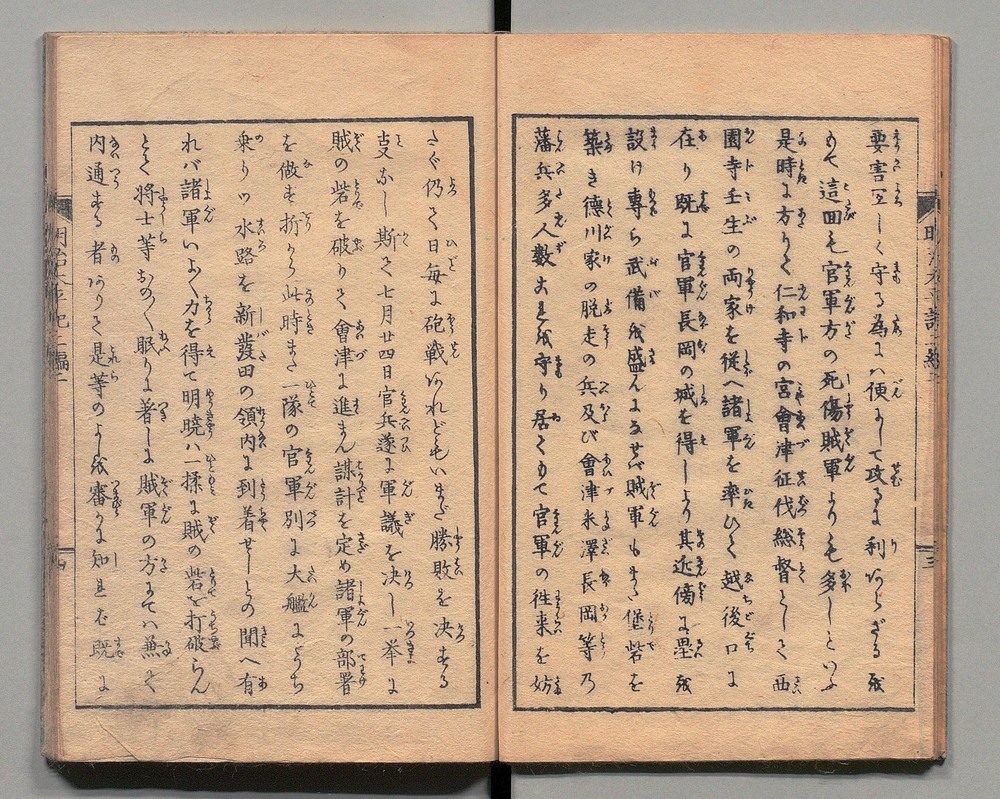 要害宜しく守る為には便にして攻るに利あらざるを
もて這回も官軍方の死傷賊軍よりも多しといふ
是時に方りて仁和寺の宮會津征伐総督として西
園寺壬生の両家を従へ諸軍を率ひて越後口に
在り既に官軍長岡の城を得しより其近傍に塁を
設け専ら武備を盛んになせバ賊軍もまた堡砦を
築き徳川家の脱走の兵及び會津米澤長岡等乃
藩兵多人数これを守り居てもて官軍の往来を妨
さぐ仍て日毎に砲戦あれどもいまだ勝敗を決する
支なし斯て七月廿四日官兵遂に軍議を决し一挙に
賊の砦を破りて會津に進まん謀計を定め諸軍の部署
を做す折から此時また一隊の官軍別に大艦にうち
乗りツ水路を新發田の領内に到着せしとの聞へ有
れバ諸軍いよ〱力を得て明暁ハ揉に賊の砦を打破らん
とて将士等おの〱眠りに著しに賊軍の方にてハ兼て
内通する者ありて是等のよしを審かに知且in既に
明治太平記三編二
三
明治太平記三編二
四